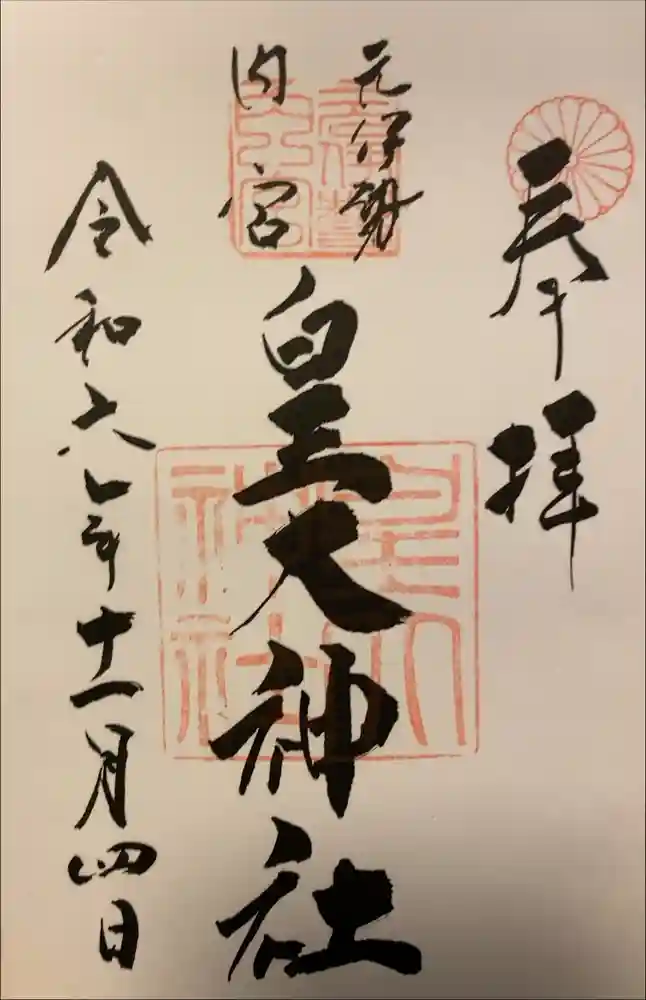 奉拝
元伊勢
内宮
皇大神社
令和六年十一月四日
元伊勢
内宮
皇大
神社